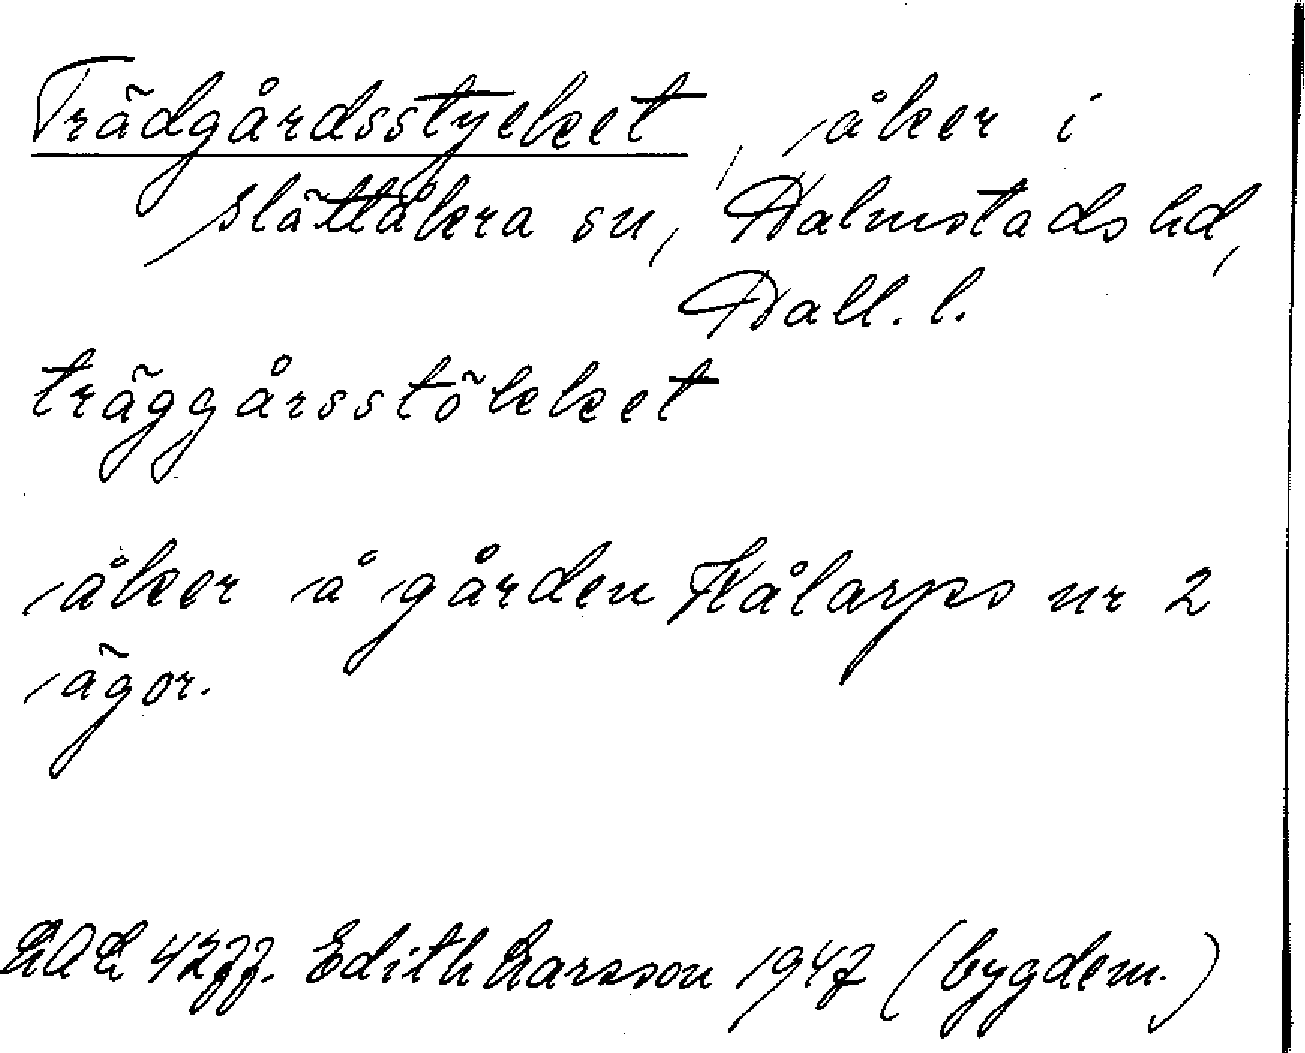 Trädgårdsstycket, åker i
Slättåkra sn, Halmstads hd,
Hall. l.
träggårsstökket
åker å gården Kålarps nr 2
ägor.
LAL 4277. Edith Larsson 1947 (bygdem.)